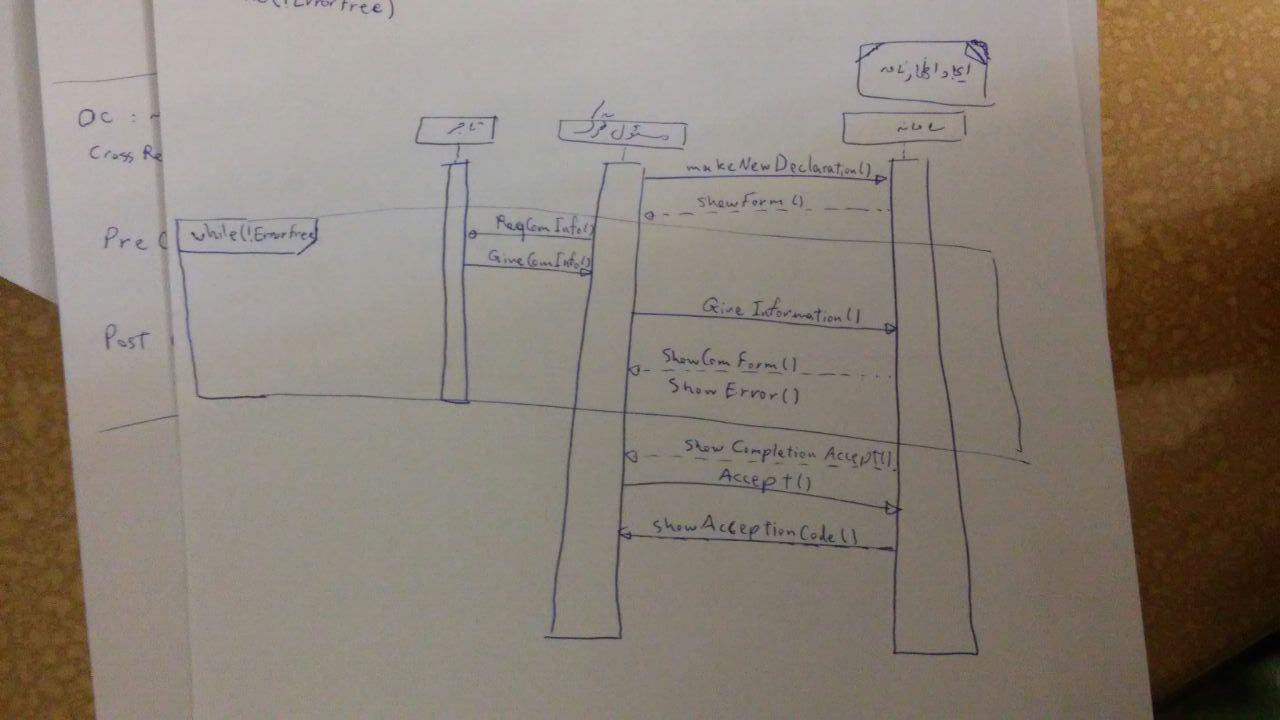 (!ErrorFree)
ایجاد اظهارنامه
تاجر
مسئول گمرک
سامانه
OC : ~
Cross Re
Pre C
Post
makeNewDeclaration()
showForm()
while(!Errorfree
ReqComInfo()
GiveComInfo()
Give Information()
ShowComForm()
Show Error()
show Completion Accept()
Accept()
showAcceptionCode()